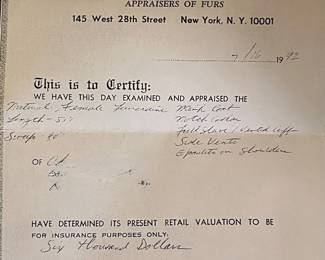 APPRAISERS OF FURS
145 West 28th Street New York, N. Y. 10001
7/16 1992
This is to Certify:
WE HAVE THIS DAY EXAMINED AND APPRAISED THE
Natural Female Mink Coat
Length - Notch Collar
Full
Side Vents
on Shoulders
OF
HAVE DETERMINED ITS PRESENT RETAIL VALUATION TO BE
FOR INSURANCE PURPOSES ONLY:
Six Thousand Dollars